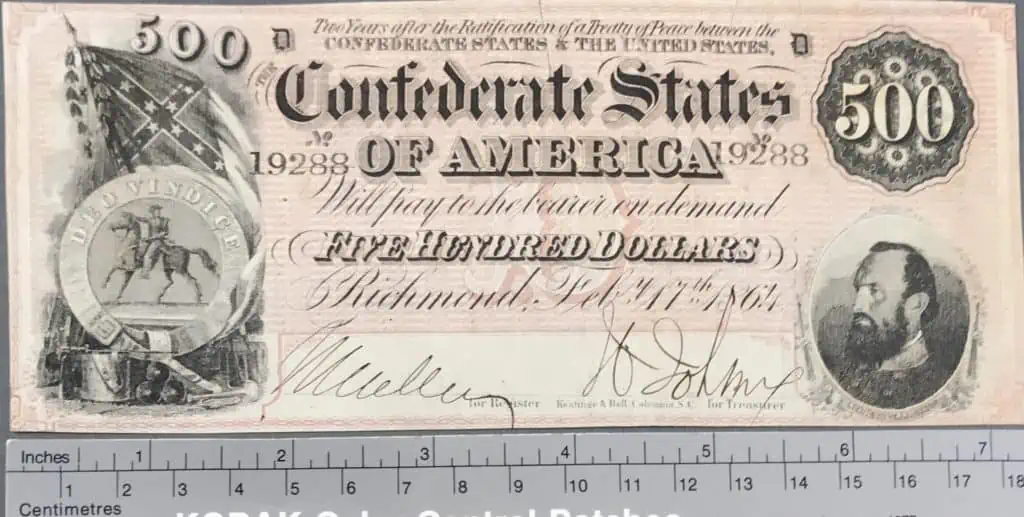 500
D
Two Years after the Ratification of a Treaty of Peace between the
CONFEDERATE STATES & THE UNITED STATES,
D
THE
Confederate States
500
No 19288
OF AMERICA
No 19288
DEO VINDICE
Will pay to the bearer on demand
FIVE HUNDRED DOLLARS
Richmond, Feby. 17th 1864
for Register
Keatinge & Ball, Columbia, S.C.
for Treasurer
Inches 1 2 3 4 5 6 7
1 2 3 4 5 6 7 8 9 10 11 12 13 14 15 16 17 18
Centimetres
KODAK Color Control Patches